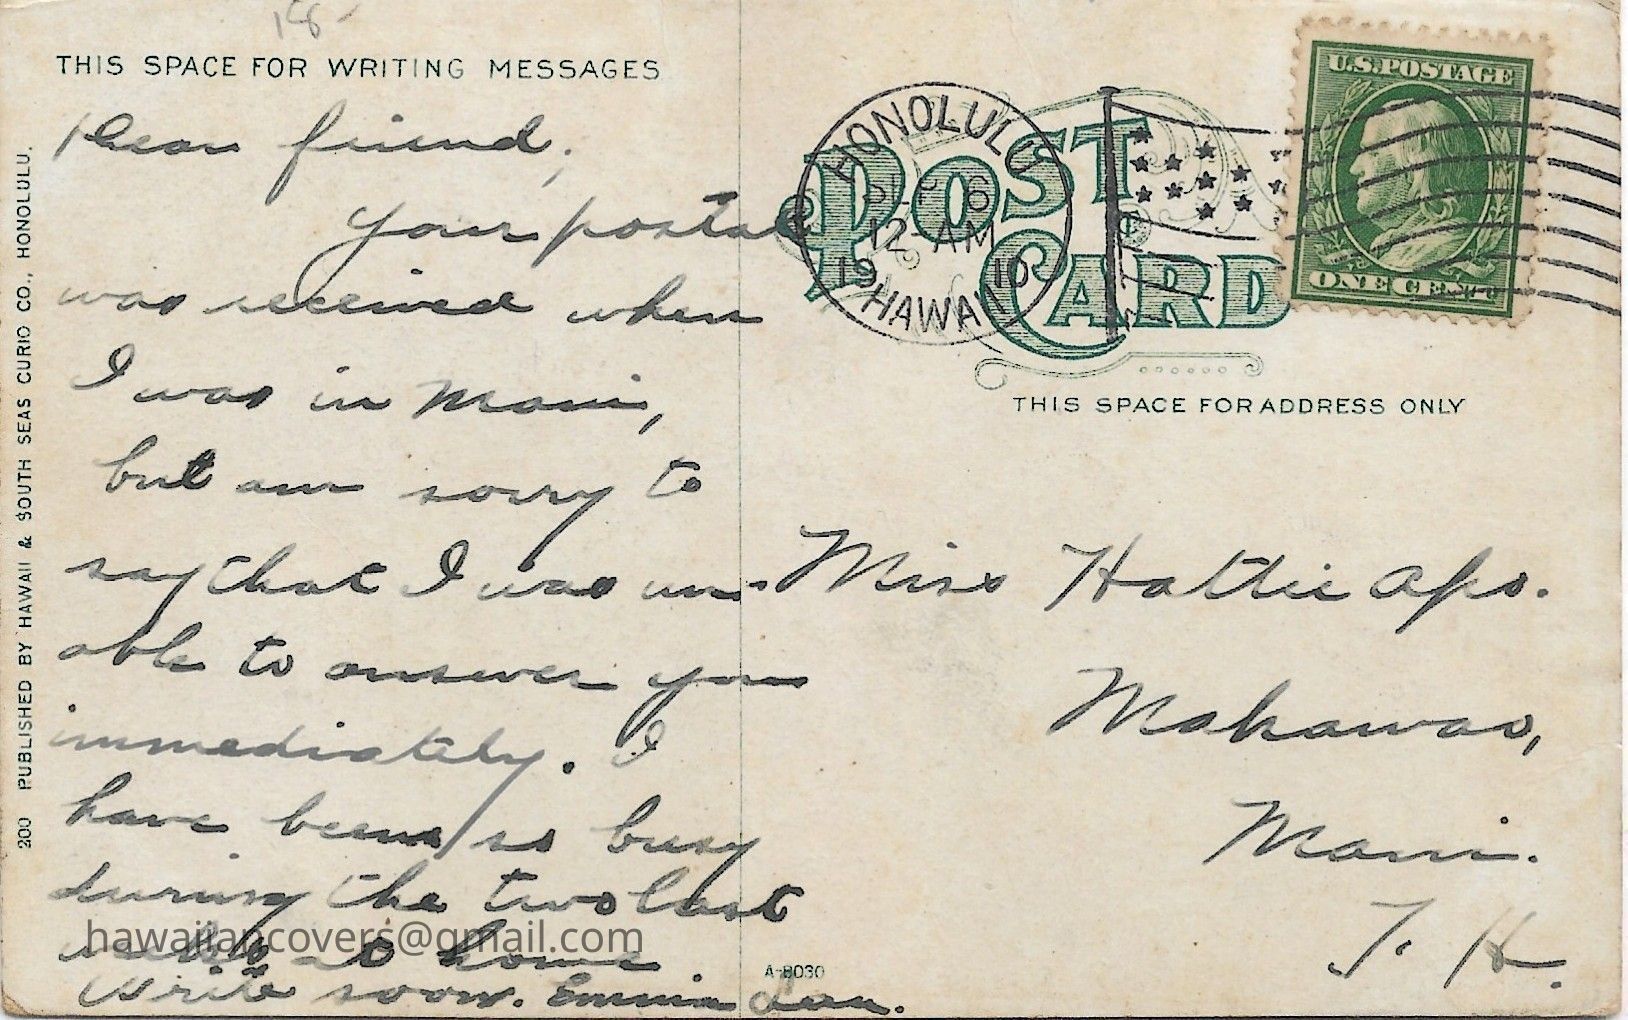 18
THIS SPACE FOR WRITING MESSAGES
Dear friend,
Your postal
was received when
I was in Maui,
but am sorry to
say that I was un-
able to answer you
immediately. I
have been so busy
during the two last
weeks at home
Write soon. Emma
200 PUBLISHED BY HAWAII & SOUTH SEAS CURIO CO., HONOLULU.
hawaiiancovers@gmail.com
POST
CARD
HONOLULU
6
12 - AM
19 10
HAWAII
U.S. POSTAGE
ONE CENT
THIS SPACE FOR ADDRESS ONLY
Miss Hattie Apo.
Makawao,
Maui.
T. H.
A-8030